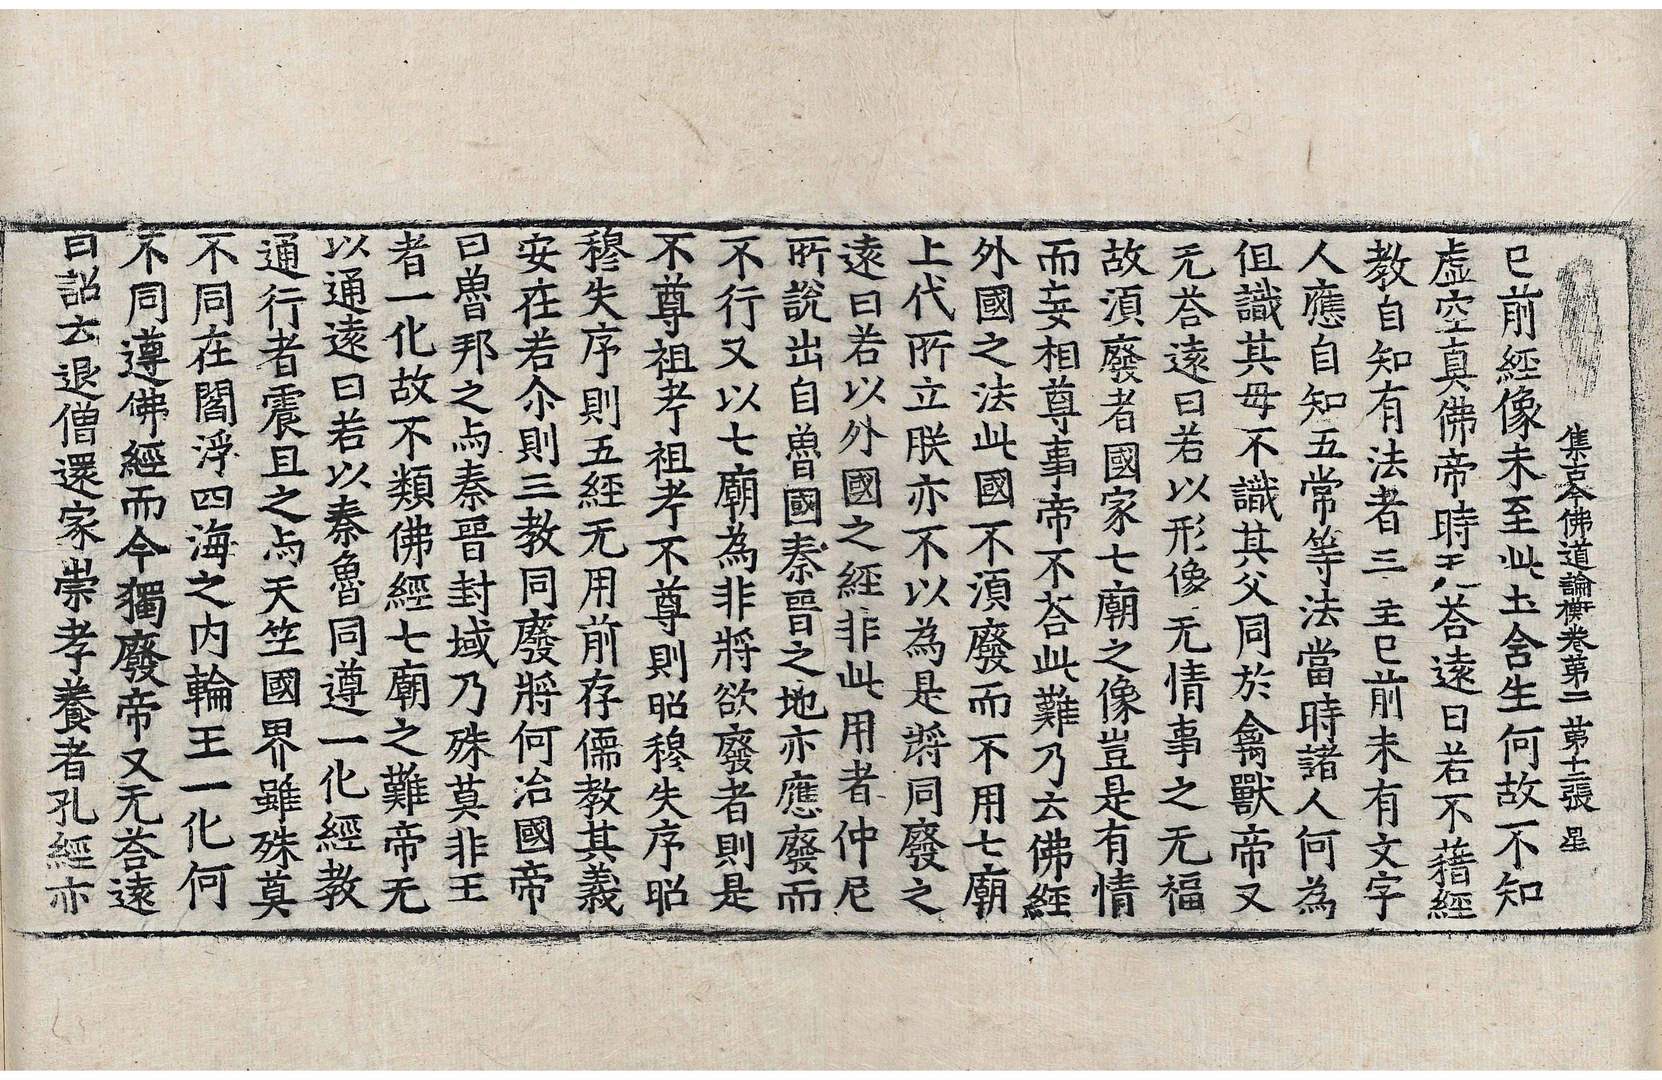 集古今佛道論衡卷第二　第十二張　星
已前經像未至此土舍生何故不知
虛空真佛帝時无荅遠曰若不藉經
教自知有法者三王已前未有文字
人應自知五常等法當時諸人何為
但識其母不識其父同於禽獸帝又
无荅遠曰若以形像无情事之无福
故須廢者國家七廟之像豈是有情
而妄相尊事帝不荅此難乃云佛經
外國之法此國不須廢而不用七廟
上代所立朕亦不以為是將同廢之
遠曰若以外國之經非此用者仲尼
所說出自魯國秦晉之地亦應廢而
不行又以七廟為非將欲廢者則是
不尊祖考祖考不尊則昭穆失序昭
穆失序則五經无用前存儒教其義
安在若尒則三教同廢將何治國帝
曰魯邦之与秦晉封域乃殊莫非王
者一化故不類佛經七廟之難帝无
以通遠曰若以秦魯同遵一化經教
通行者震旦之与天竺國界雖殊莫
不同在閻浮四海之內輪王一化何
不同遵佛經而今獨廢帝又无荅遠
曰詔云退僧還家崇孝養者孔經亦